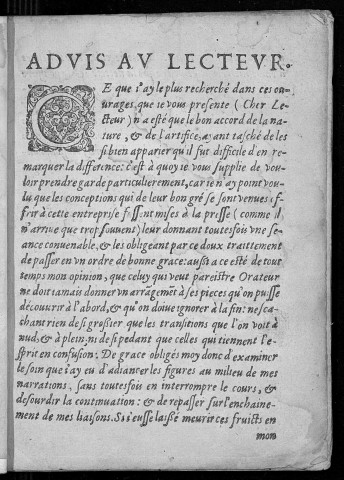 ADVIS AV LECTEVR.
CE que i'ay le plus recherché dans ces ou-
urages, que ie vous presente (Cher Le-
cteur) n'a esté que le bon accord de la na-
ture, & de l'artifice, ayant tasché de les
si bien apparier qu'il fut difficile d'en re-
marquer la difference: c'est à quoy ie vous supplie de vou-
loir prendre garde particulierement, car ie n'ay point vou-
lu que les conceptions qui de leur bon gré se sont venues i
frir à cette entreprise fussent mises à la presse (comme il
n'arriue que trop souuent) leur donnant toutesfois vne se-
ance conuenable, & les obligeant par ce doux traittement
de passer en vn ordre de bonne grace: aussi a ce esté de tout
temps mon opinion, que celuy qui veut pareistre Orateur
ne doit iamais donner vn arrãgemẽt à ses pieces qu'on puisse
découurir à l'abord, & qu'on doiue ignorer à la fin: ne sca-
chant rien de si grossier que les transitions que l'on voit à
nud, & à plein, ni de si pedant que celles qui tiennent l'e-
sprit en confusion: De grace obligés moy donc d'examiner
le soin que i'ay eu d'adiancer les figures au milieu de mes
narrations, sans toutesfois en interrompre le cours, & 
desourdir la continuation: & de repasser sur l'enchaine-
ment de mes liaisons. Si i'eusse laissé meurir ces fruicts en
mon